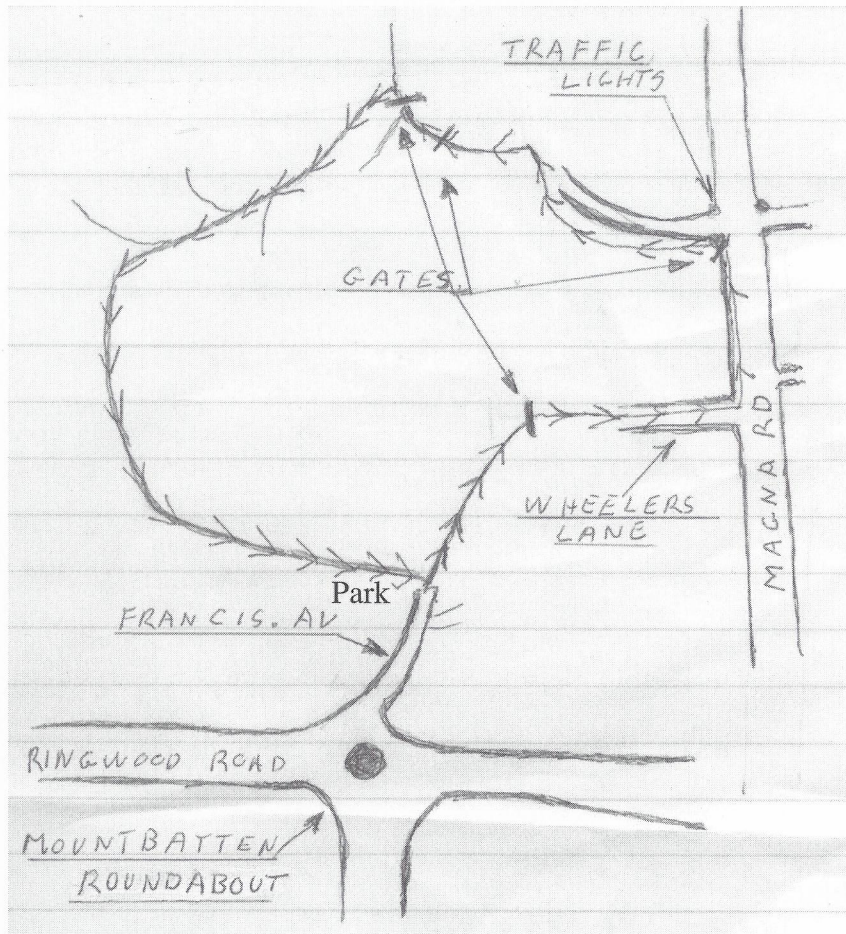 TRAFFIC
LIGHTS
GATES.
WHEELERS
LANE
MAGNA RD
Park
FRANCIS. AV
RINGWOOD ROAD
MOUNTBATTEN
ROUNDABOUT